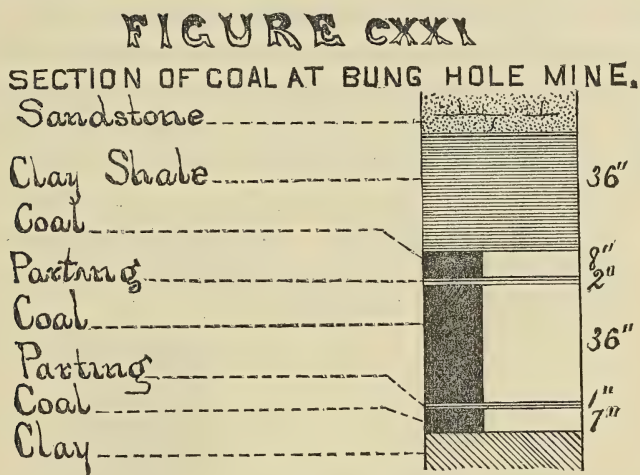 FIGURE CXXI
SECTION OF COAL AT BUNG HOLE MINE.
Sandstone
Clay Shale 36"
Coal 8"
Parting 2"
Coal 36"
Parting 1"
Coal 7"
Clay